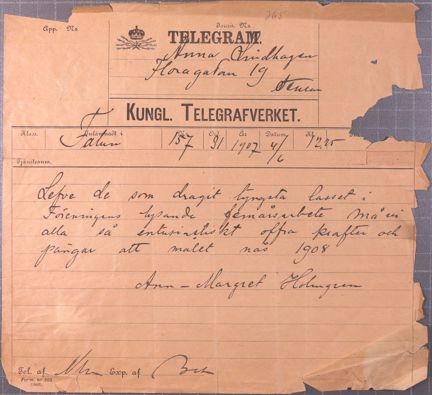 App. No
Journ. No
265
TELEGRAM.
Anna Lindhagen
Floragatan 19
KUNGL. TELEGRAFVERKET.
Klass.
Inlämnadt i
Ord
År
Datum
Kl.
Falun
157
31
1907
4/6
12,25
Tjänsteanm.
Lefve de som dragit tyngsta lasset i
Föreningens lysande femårsarbete må vi
alla så entusiastiskt offra krafter och
pängar att målet nås 1908
Ann-Margret Holmgren
Tel. af
Exp. af
Form. No